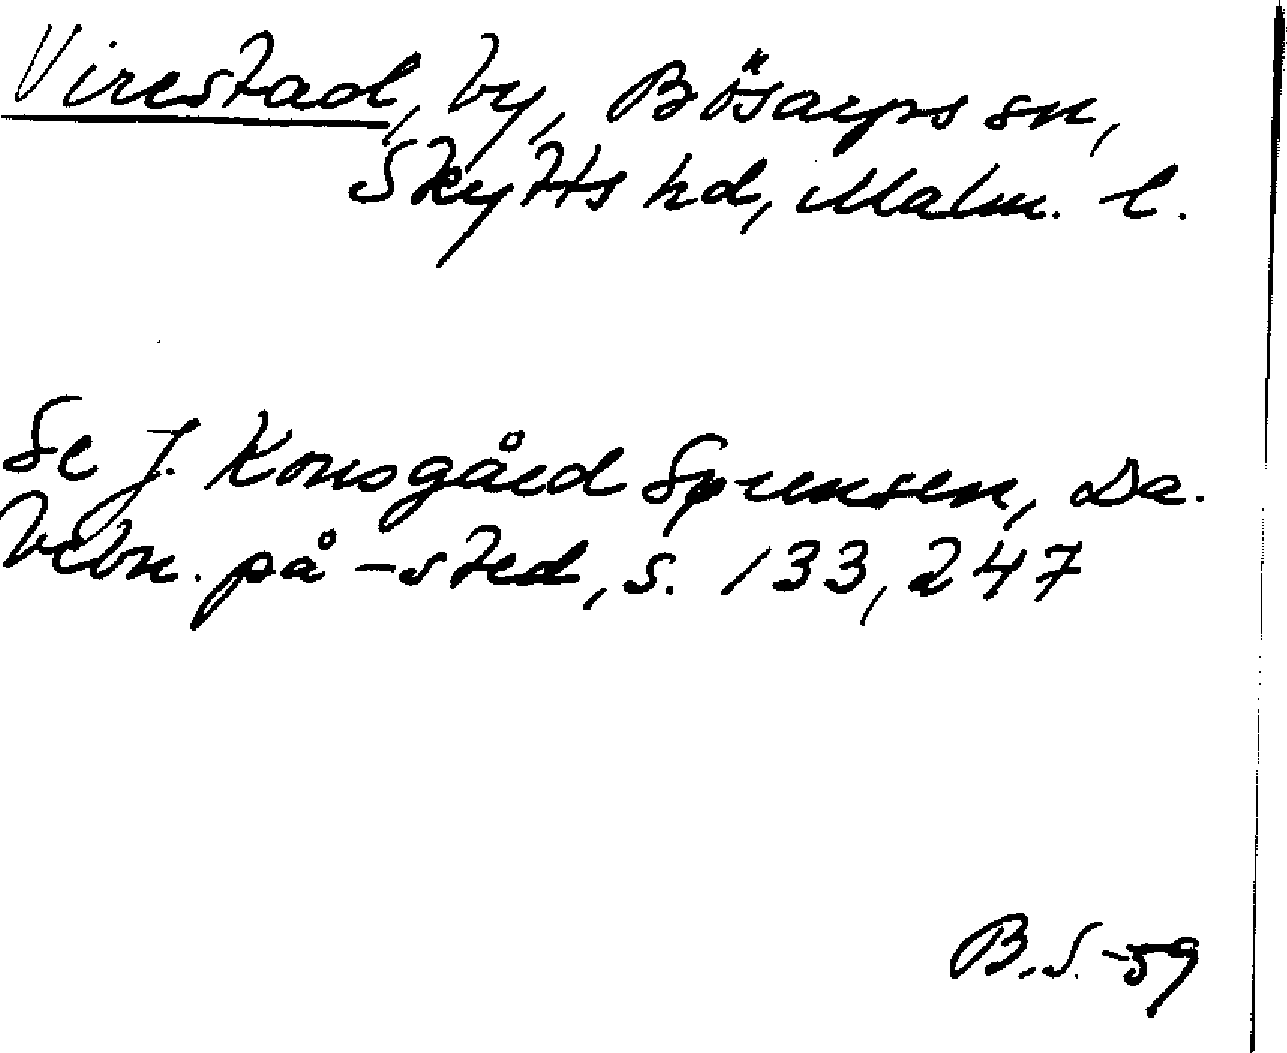 Virestad, by, Bösarps sn,
Skytts hd, Malm. l.
Se J. Kousgård Sørensen, Da.
bebn. på -sted, s. 133, 247
B.S. -59